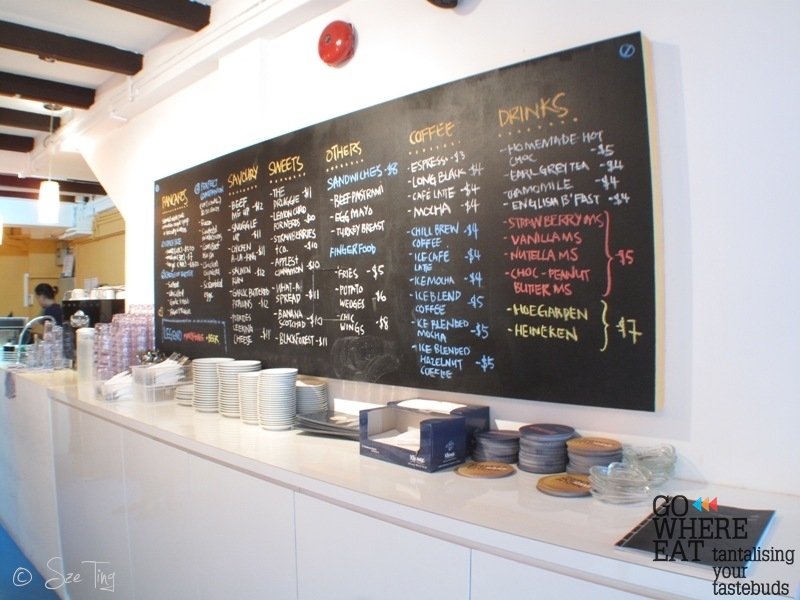 PANCAKES
PERFECT
LEGEND
BEER
SAVOURY
BEEF
ME UP -$12
SNUGGLE
UP -$11
CHICKEN
A-LA-KING -$11
SALMON
RUN -$12
GARLIC BUTTERED
PRAWNS -$12
CHEESE -$11
SWEETS
-THE
DRUGGIE -$11
-LEMON CURD
FOR NERDS -$10
-STRAWBERRIES
&CO. -$10
-APPLES &
CINNAMON -$10
-WHAT-A
SPREAD -$11
-BANANA
SCOTCHED -$10
-BLACKFOREST -$11
OTHERS
SANDWICHES -$8
-BEEF PASTRAMI
-EGG MAYO
-TURKEY BREAST
FINGERFOOD
-FRIES -$5
-POTATO
WEDGES $6
-CHIC
WINGS -$8
COFFEE
-ESPRESSO -$3
-LONG BLACK -$4
-CAFÉ LATTE -$4
-MOCHA -$4
-CHILL BREW -$4
COFFEE
-ICE CAFÉ -$4
LATTE
-ICE MOCHA -$4
-ICE BLEND -$5
COFFEE
-ICE BLENDED -$5
MOCHA
-ICE BLENDED
HAZELNUT -$5
COFFEE
DRINKS
-HOMEMADE HOT
CHOC -$5
-EARL GREY TEA -$4
-CHAMOMILE -$4
-ENGLISH B'FAST -$4
-STRAWBERRY MS
-VANILLA MS
-NUTELLA MS
-CHOC-PEANUT
BUTTER MS
$5
-HOEGARDEN
-HEINEKEN
$7
GO
WHERE
EAT
tantalising
your
tastebuds
© Sze Ting